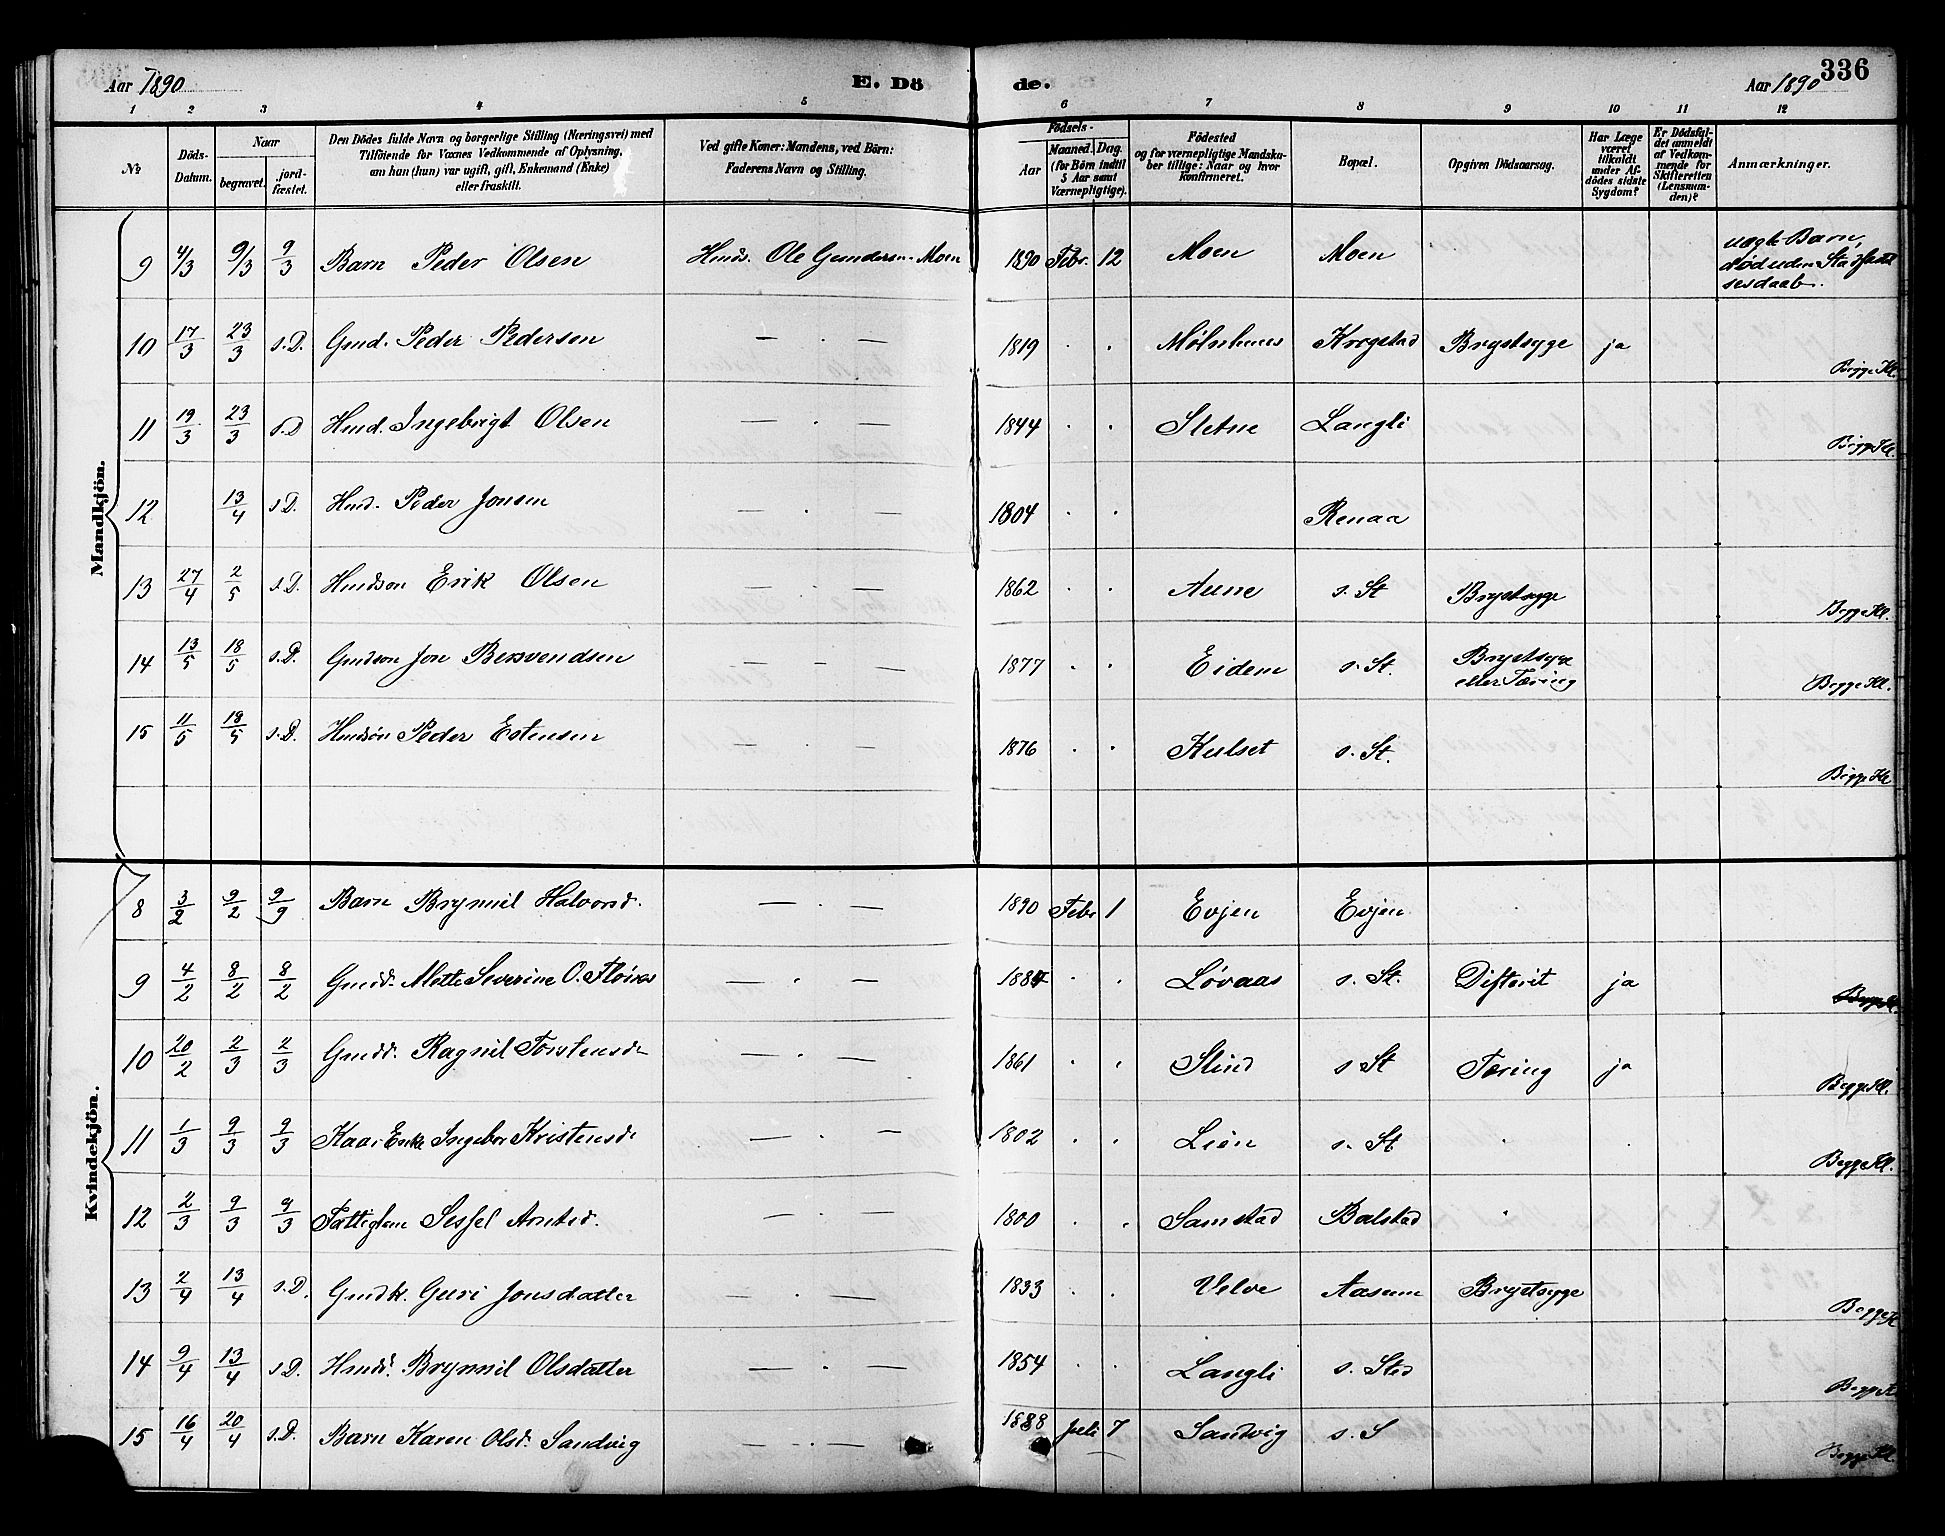 Aar 1890 E. Dö de. Aar 1890 336
1 2 3 4 5 6 7 8 9 10 11 12
№
Döds-Datum.
Naar
begravet.
jordfæstet.
Den Dödes fulde Navn og borgerlige Stilling (Næringsvei) med
Tilföiende for Voxnes Vedkommende af Oplysning,
om han (hun) var ugift, gift, Enkemand (Enke)
eller fraskilt.
Ved gifte Koner: Mandens, ved Börn:
Faderens Navn og Stilling.
Födsels-
Aar
Maaned. Dag.
(for Börn indtil
5 Aar samt
Værnepligtige).
Födested
og for værnepligtige Mandska-
ber tillige: Naar og hvor
konfirmeret.
Bopæl.
Opgiven Dödsaarsag.
Har Læge
været
tilkaldt
under Af-
dödes sidste
Sygdom?
Er Dödsfal-
det anmeldt
af Vedkom-
mende for
Skifteretten
(Lensman-
den)?
Anmærkninger.
Mandkjön.
9 4/3 9/3 9/3 Barn Peder Olsen Hmds. Ole Gundersen Moen 1890 Febr. 12 Moen Moen uægte Barn,
død uden Stadfæstel
sesdaab.
10 17/3 23/3 s.D. Gmd. Peder Pedersen — . — 1819 . . Mølnhuus Krogstad Brystsyge ja Begge Kl.
11 19/3 23/3 s.D Hmd. Ingebrigt Olsen — . — 1844 . . Sletne Langli Begge Kl.
12 13/4 s.D. Hmd. Peder Jonsen — . — 1804 . . Renaa
13 27/4 2/5 s.D. Hmdsøn Erik Olsen — . — 1862 . . Aune s. St Brystsyge Begge Kl.
14 13/5 18/5 s.D. Gmdsøn Jon Bersvendsen — — — 1877 . . Eidem s. St. Brystsyge
eller Tæring Begge Kl.
15 11/5 18/5 s.D. Hmdsøn Peder Estensen — . — 1876 . . Kulset s. St. Begge Kl
Kvindekjön.
8 3/2 9/2 9/9 Barn Brynnil Halvorsd. — . — 1890 Febr 1 Evjen Evjen .
9 4/2 8/2 8/2 Gmdd. Mette Severine O. Fløies — . — 1884 . . Løvaas s. St. Difterit ja
10 20/2 2/3 2/3 Gmdd. Ragnil Torstensd — . — 1861 . . Slind s St Tæring ja Begge Kl.
11 1/3 9/3 9/3 Kaar Enke Ingebor Kristensd. — . — 1802 . . Lien s. St . . Begge Kl.
12 2/3 9/3 9/3 Fattiglem Sessel Arntsd. — . — 1800 . Samstad Balstad .
13 2/4 13/4 s.D. Gmdk. Guri Jonsdatter — . — 1833 . . Velve Aasum Brystsyge Begge Kl
14 9/4 13/4 s D. Hmdd. Brynnil Olsdatter — . — 1854 . . Langli s. Sted Begge Kl
15 16/4 20/4 s.D. Barn Karen Olsd. Sandvig — . — 1888 Juli 7 Sandvig s. S Begge Kl.